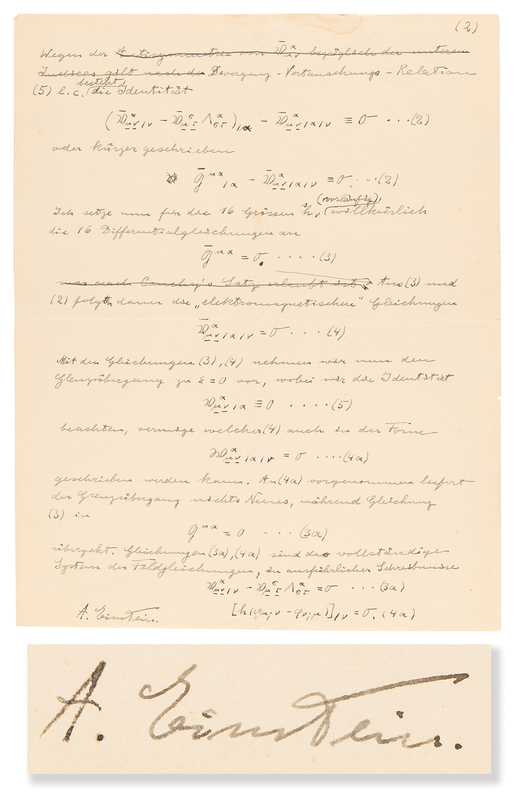 (2)
Wegen der Antisymmetrie von 𝔚̄^α_μν bezüglich der unteren
Indices gilt nach der Divergenz-Vertauschungs-Relation
besteht
(5) l.c. die Identität
(𝔚̄^α_μν/ν − 𝔚̄^σ_μτ Λ^α_στ)/α − 𝔚̄^α_μν/α/ν ≡ 0 ··· (2)
oder kürzer geschrieben
Ḡ^μα/α − 𝔚̄^α_μν/α/ν ≡ 0 ··· (2)
(vorläufig)
Ich setze nun für die 16 Grössen ^s h_ν willkürlich
die 16 Differentialgleichungen an
Ḡ^μα = 0. ···· (3)
was nach Cauchy's Satz erlaubt ist. Aus (3) und
(2) folgen dann die „elektromagnetischen" Gleichungen
𝔚̄^α_μν/α = 0 ··· (4)
Mit den Gleichungen (3), (4) nehmen wir nun den
Grenzübergang zu ε = 0 vor, wobei wir die Identität
𝔚^α_μν/α ≡ 0 ···· (5)
beachten, vermöge welcher (4) auch in der Form
𝔚^α_μν/α/ν = 0 ···· (4a)
geschrieben werden kann. An (4a) vorgenommen liefert
der Grenzübergang nichts Neues, während Gleichung
(3) in
G^μα = 0 ··· (3a)
übergeht. Gleichungen (3a), (4a) sind das vollständige
System der Feldgleichungen, in ausführlicher Schreibweise
𝔚^α_μν/ν − 𝔚^σ_μτ Λ^α_στ = 0 ··· (3a)
[h(φ_μ;ν − φ_ν;μ)]/ν = 0. (4a)
A. Einstein.
A. Einstein.